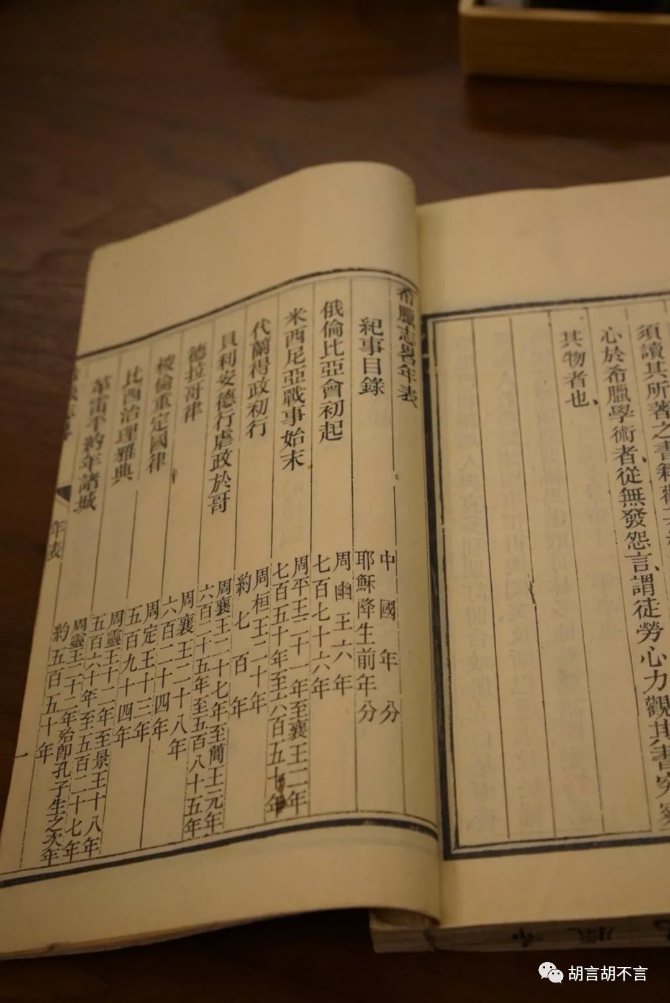 須讀其所著之書籍
心於希臘學術者、從無發怨言、謂徒勞心力、觀其書究
其物者也、
希臘志畧年表
紀事目錄
中國年分
耶穌降生前年分
俄倫比亞會初起
周幽王六年
七百七十六年
米西尼亞戰事始末
周平王二十一年至襄王二年
七百五十年至六百五十年
代蘭得政初行
周桓王二十年
約七百年
貝利安德行虐政於哥
周襄王二十七年至簡王元年
六百二十五年至五百八十五年
德拉哥律
周襄王二十八年
六百二十四年
梭倫重定國律
周定王十三年
五百九十四年
比西治理雅典
周靈王十二年至景王十八年
五百六十年至五百二十七年
革雷千納年諸城
周靈王二十二年殆卽孔子生之次年
約五百五十年
年表
一
胡言胡不言